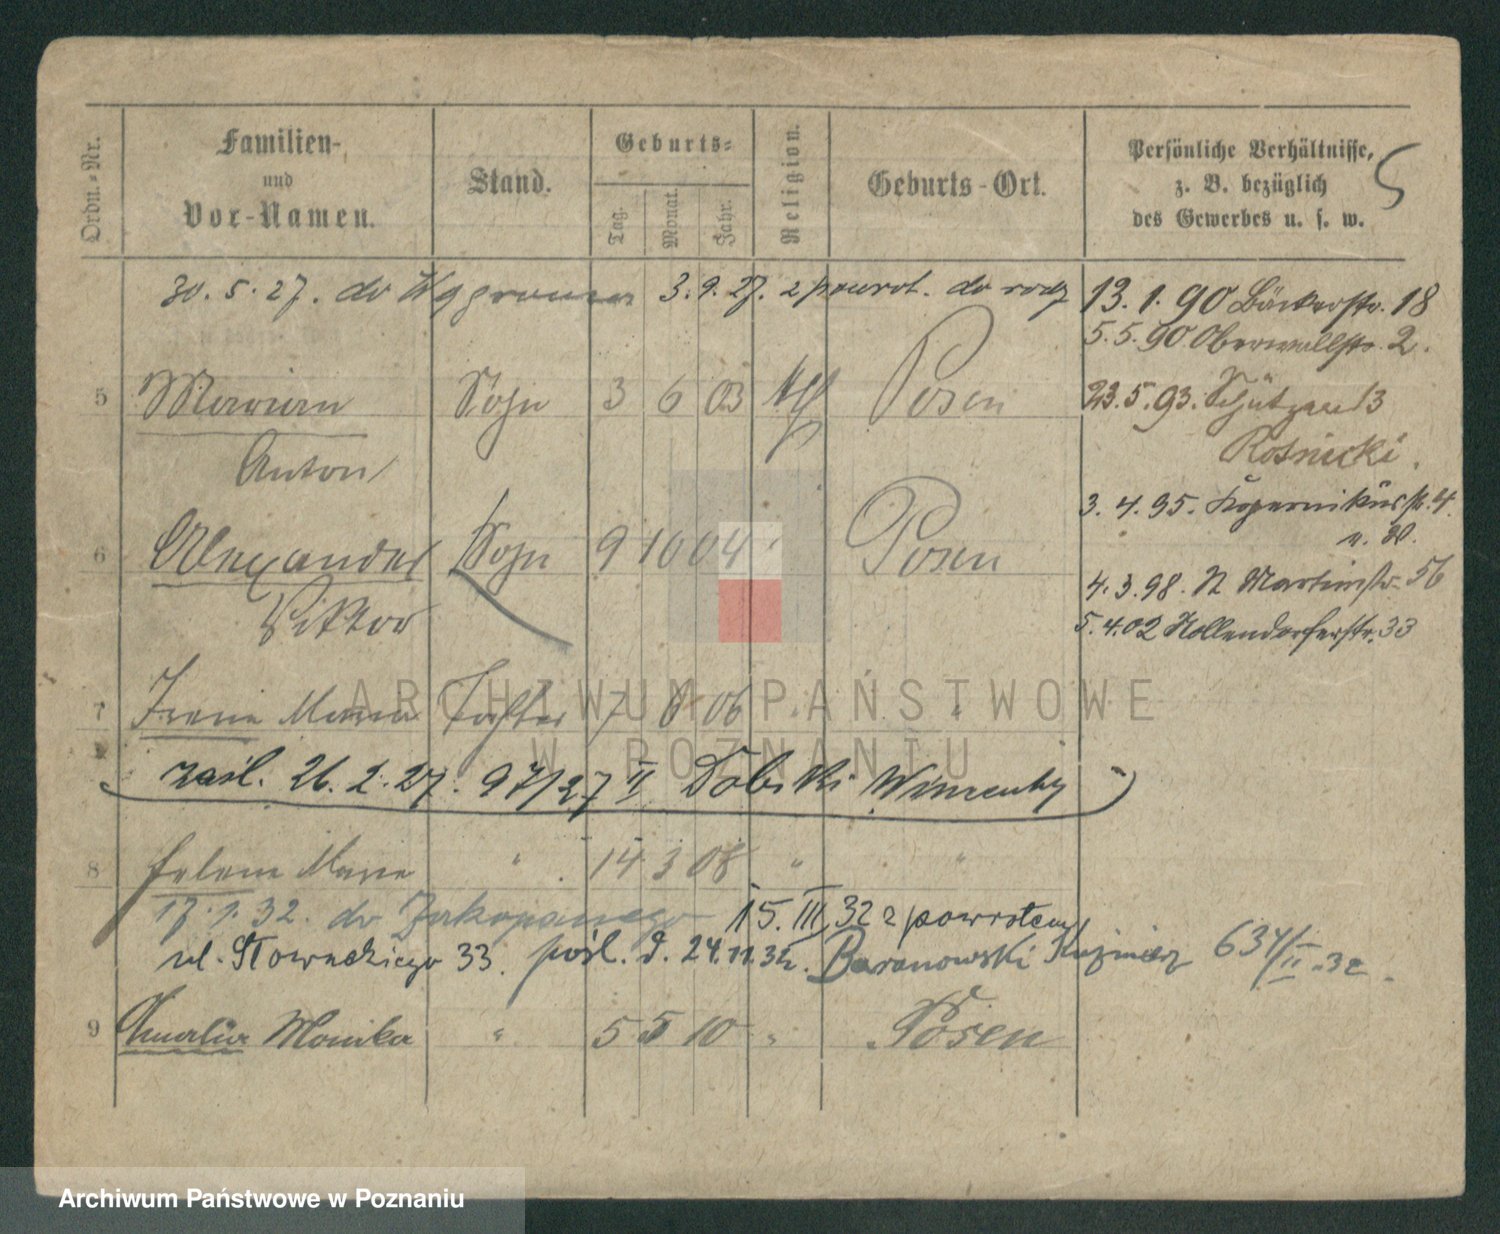 Ordn.-Nr.
Familien-
und
Vor-Namen.
Stand.
Geburts-
Tag.
Monat.
Jahr.
Religion.
Geburts-Ort.
Persönliche Verhältnisse,
z. B. bezüglich
des Gewerbes u. s. w.
5
30. 5. 27. do 3. 9. 27. z powrot. do
13. 1. 90 Bäckerstr. 18
5. 5. 90 Oberwallstr. 2.
5 Marian Sohn 3 6 03 kth Posen
Anton
23. 5. 93. Schützenstr 13
Rosnicki.
3. 4. 95. Kopernikusstr. 4.
6 Alexander Sohn 9 10 04 Posen
Viktor
4. 3. 98. St Martinstr. 56
5. 4. 02 Hollendorferstr. 33
7 Irene Maria Tochter 7 8 06 " "
zaśl. 26. 2. 27. 97/27 II Dobski Wincenty
8 Helene Marie " 14 3 08 " "
17. 1. 32. do Zakopanego 15. III 32 z powrotem
ul. Słowackiego 33. pośl. d. 24. 11. 32. Baranowski Kazimierz 634/II 32.
9 Amalia Monika " 5 5 10 " Posen
ARCHIWUM PAŃSTWOWE
W POZNANIU
Archiwum Państwowe w Poznaniu